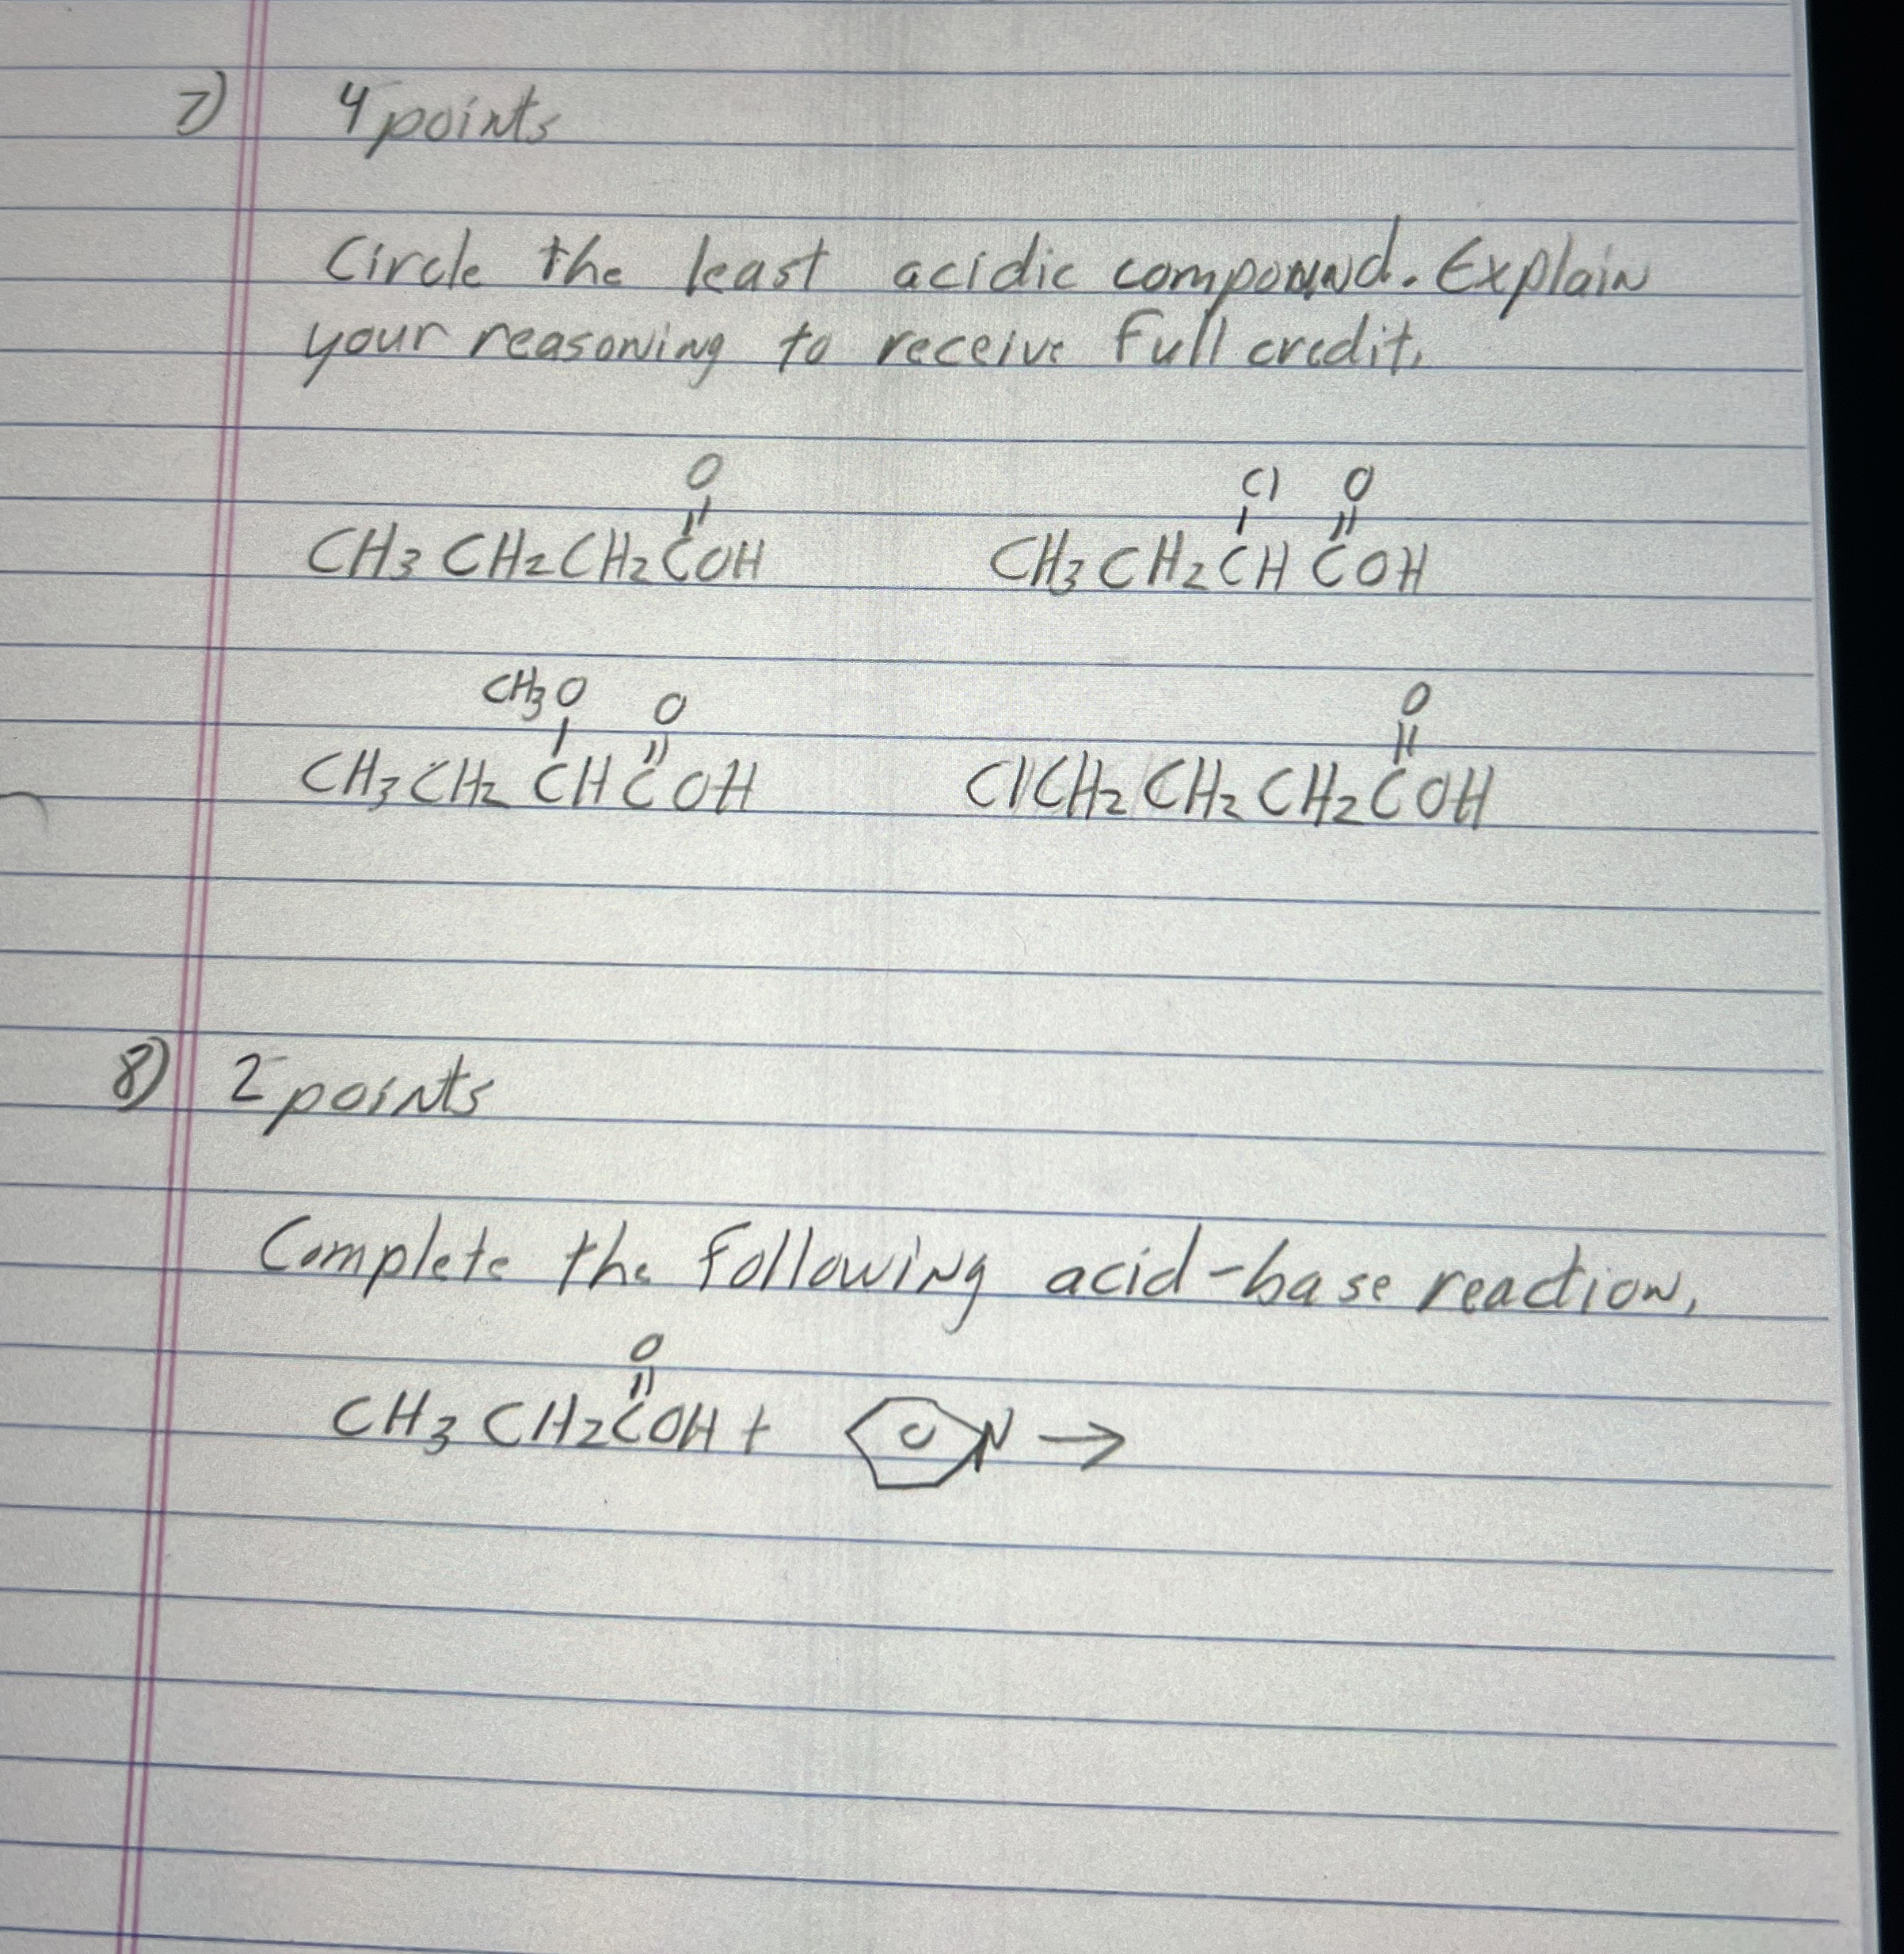 7) 4 points
Circle the least acidic compound. Explain
your reasoning to receive full credit.
O
CH3 CH2 CH2 C OH
Cl O
CH3 CH2 CH C OH
CH3 O O
CH3 CH2 CH C OH
O
Cl CH2 CH2 CH2 C OH
8) 2 points
Complete the following acid-base reaction.
O
CH3 CH2 C OH + N →